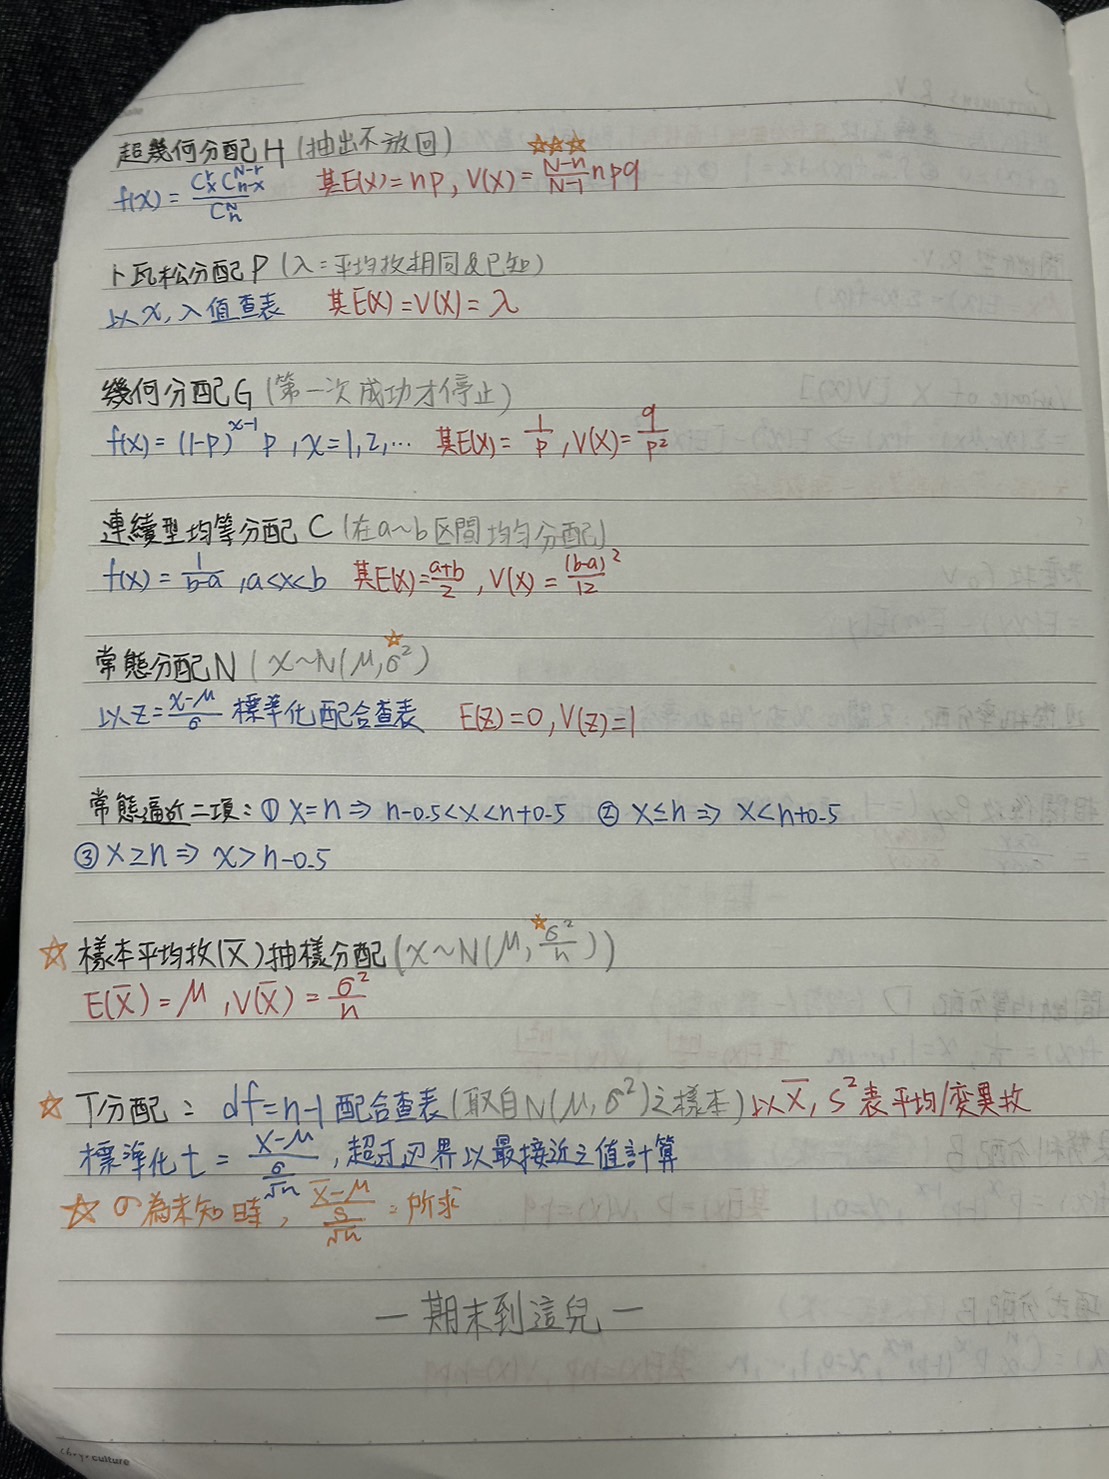 超幾何分配H(抽出不放回)
f(x)= C^r_x C^{N-r}_{n-x} / C^N_n 其E(x)=np, V(x)= ☆☆☆ N-n/N-1 npq
卜瓦松分配P(λ=平均数相同&已知)
以x, λ值查表 其E(X)=V(X)=λ
幾何分配G(第一次成功才停止)
f(x)=(1-p)^{x-1} p, x=1,2,… 其E(X)= 1/p, V(X)= q/p²
連續型均等分配C(在a~b区間均勻分配)
f(x)= 1/b-a, a<x<b 其E(X)= a+b/2, V(X)= (b-a)²/12
常態分配N(x~N(μ,☆σ²)
以z= x-μ/σ 標準化配合查表 E(z)=0, V(z)=1
常態逼近二項:① x=n ⇒ n-0.5<x<n+0.5 ② x≤n ⇒ x<n+0.5
③ x≥n ⇒ x>n-0.5
☆ 樣本平均数(x̄)抽樣分配(x~N(μ,☆σ²/n))
E(x̄)=μ, V(x̄)= σ²/n
☆ T分配: df=n-1配合查表(取自N(μ,σ²)之樣本)以x̄, s²表平均/変異数
標準化t= x-μ / σ/√n, 超过边界以最接近之值計算
☆ σ為未知時, x̄-μ / s/√n =所求
— 期末到這兒 —
culture